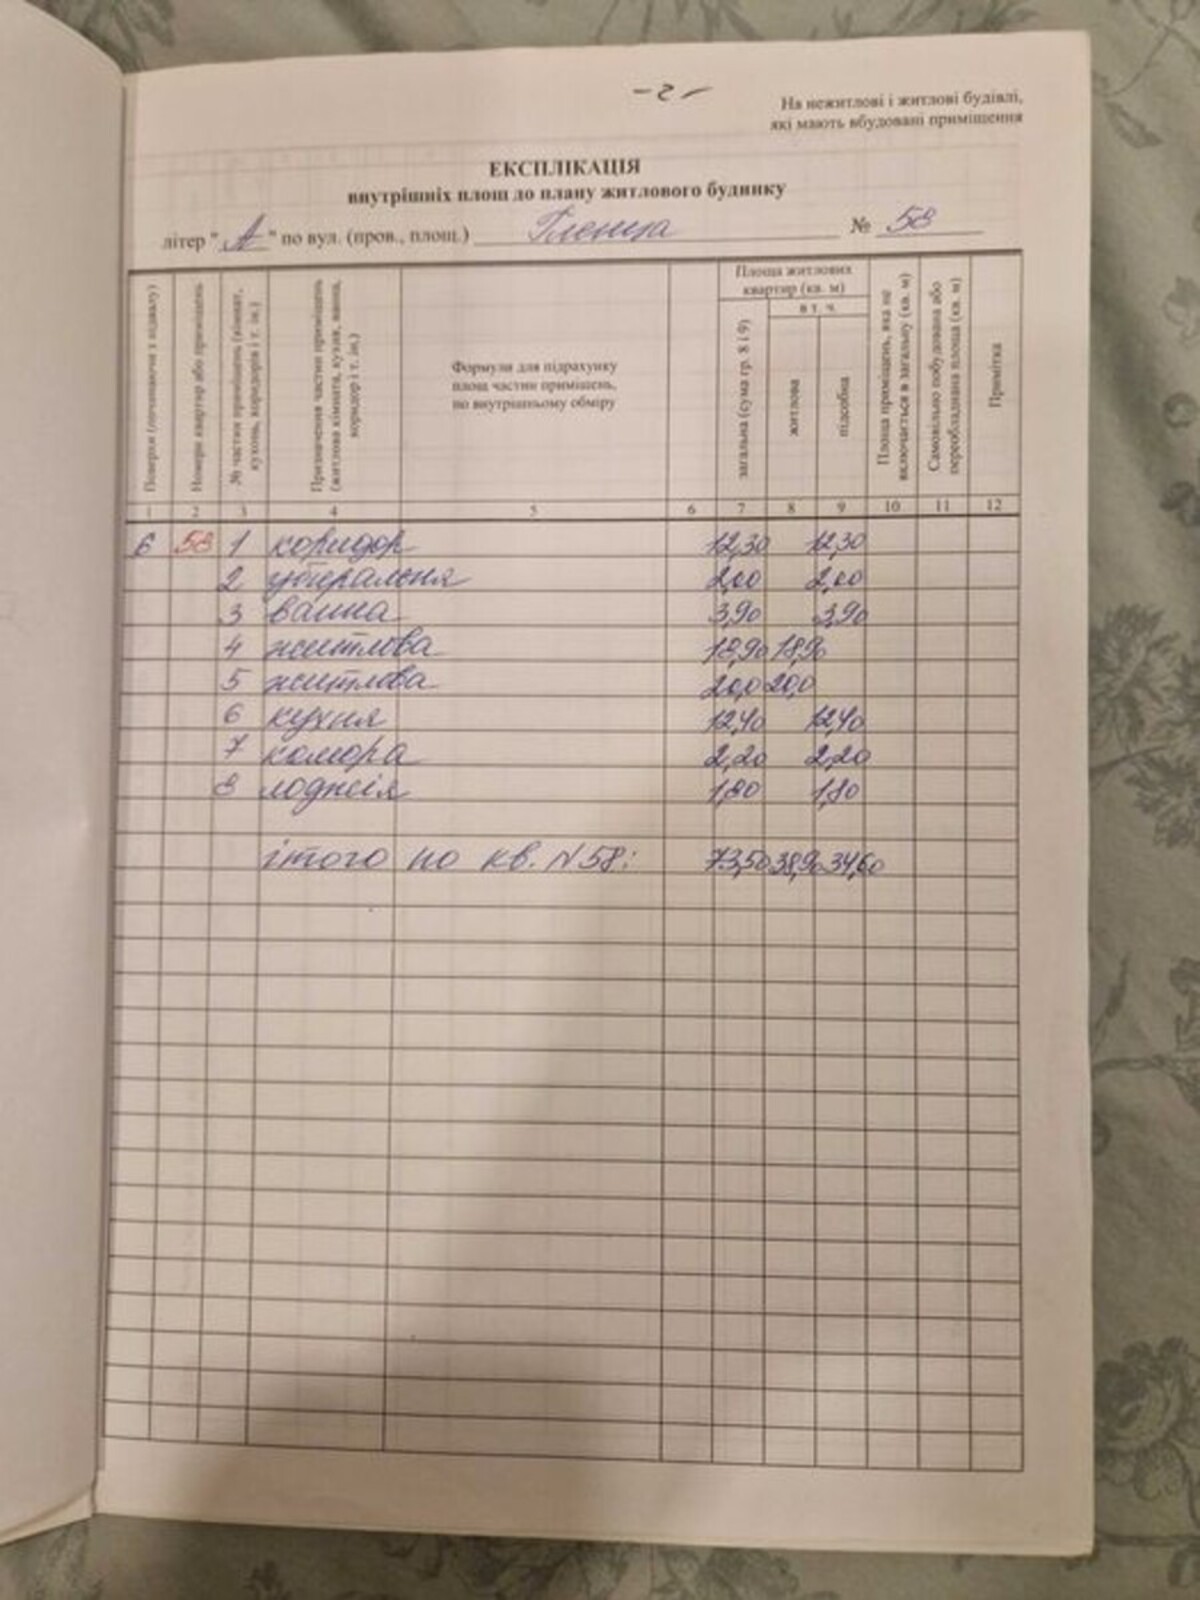 -2-
На нежитлові і житлові будівлі,
які мають вбудовані приміщення
ЕКСПЛІКАЦІЯ
внутрішніх площ до плану житлового будинку
літер " А " по вул. (пров., площ.) Гленца № 58
Поверхи (починаючи з підвалу)
Номери квартир або приміщень
№ частин приміщень (кімнат, кухонь, коридорів і т. ін.)
Призначення частин приміщень (житлова кімната, кухня, ванна, коридор і т. ін.)
Формули для підрахунку
площ частин приміщень,
по внутрішньому обміру
Площа житлових
квартир (кв. м)
загальна (сума гр. 8 і 9)
в т. ч.
житлова
підсобна
Площа приміщень, яка не включається в загальну (кв. м)
Самовільно побудована або переобладнана площа (кв. м)
Примітка
1 2 3 4 5 6 7 8 9 10 11 12
6 58 1 коридор 12,30 12,30
2 убиральня 2,00 2,00
3 ванна 3,90 3,90
4 житлова 18,90 18,90
5 житлова 20,0 20,0
6 кухня 12,40 12,40
7 комора 2,20 2,20
8 лоджія 1,80 1,80
ітого по кв. N58: 73,50 38,90 34,60